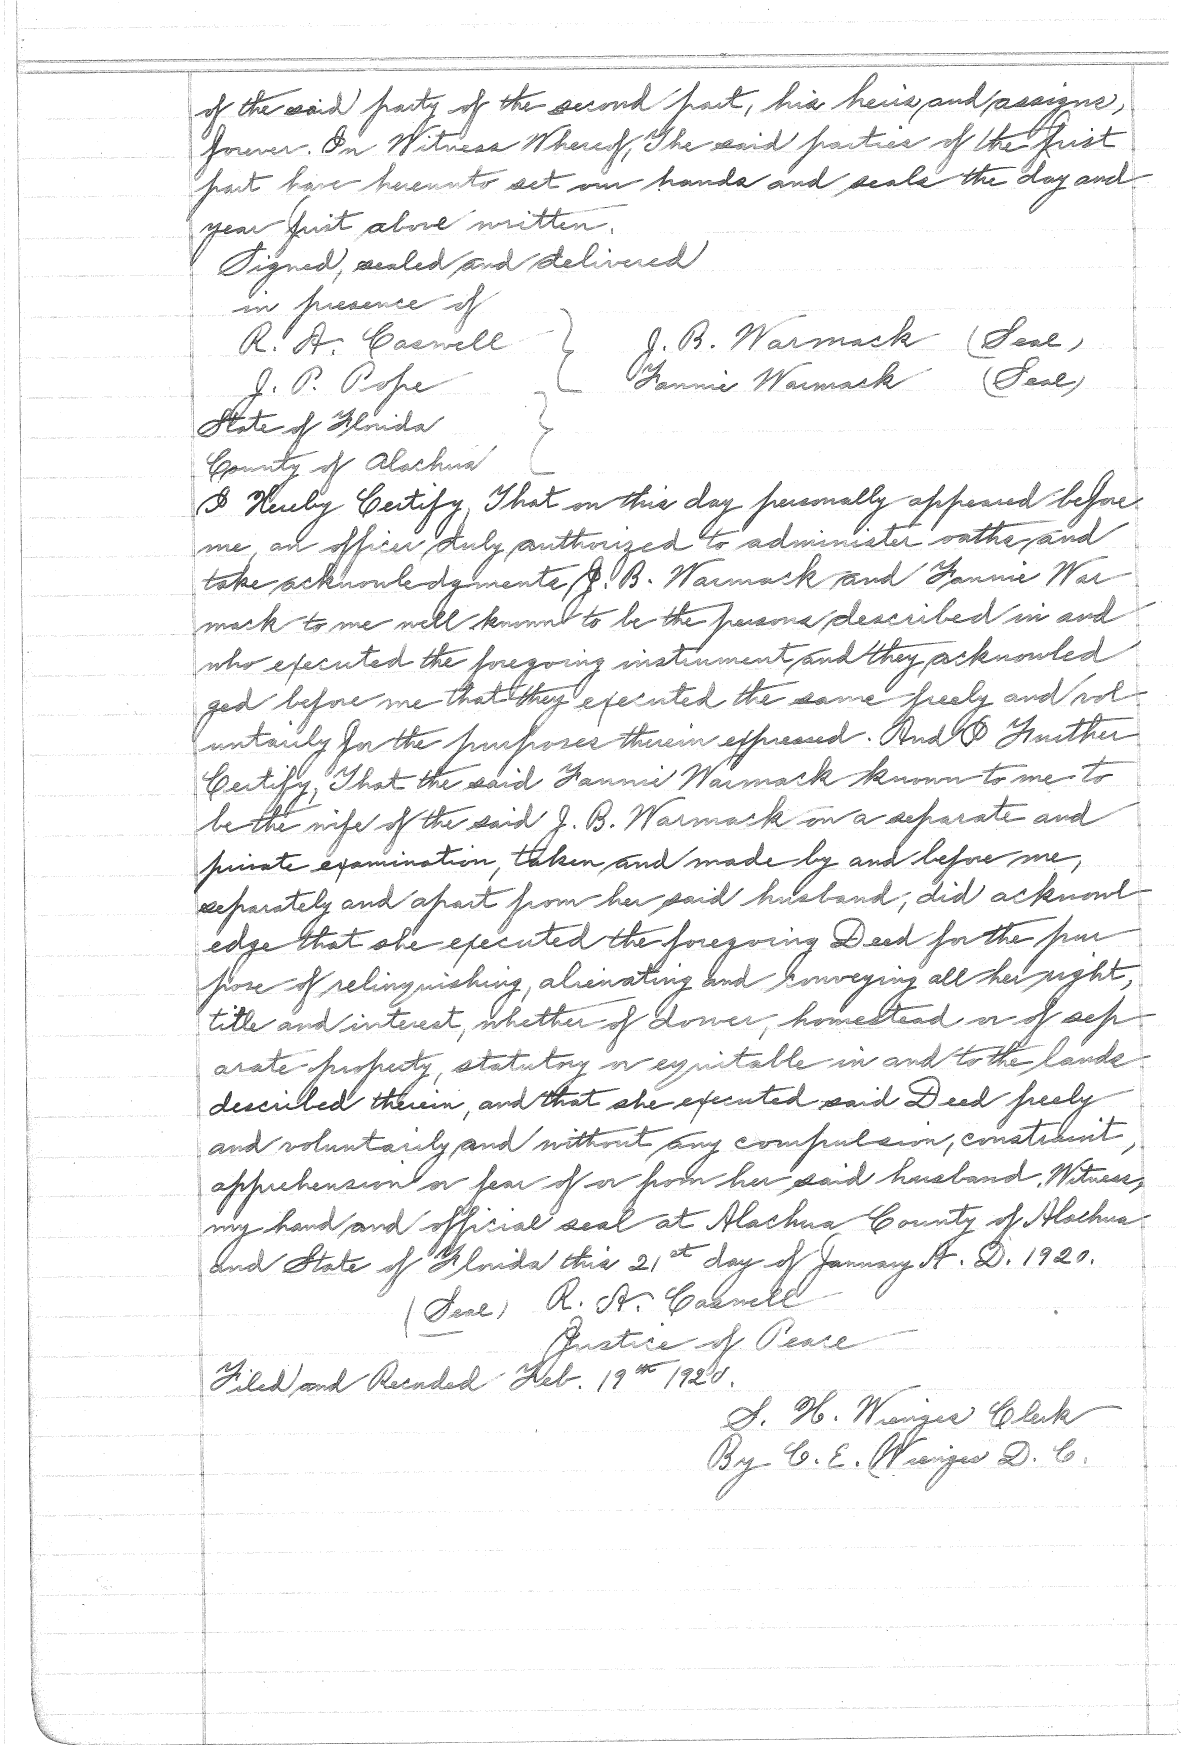 of the said party of the second part, his heirs and assigns,
forever. In Witness Whereof, The said parties of the first
part have hereunto set our hands and seals the day and
year first above written.
Signed, sealed and delivered
in presence of
R. A. Caswell } J. B. Warmack (Seal)
J. P. Pope Fannie Warmack (Seal)
State of Florida }
County of Alachua
I Hereby Certify, That on this day personally appeared before
me, an officer duly authorized to administer oaths and
take acknowledgments, J. B. Warmack and Fannie War
mack to me well known to be the persons described in and
who executed the foregoing instrument, and they acknowled
ged before me that they executed the same freely and vol
untarily for the purposes therein expressed. And I Further
Certify, That the said Fannie Warmack known to me to
be the wife of the said J. B. Warmack on a separate and
private examination, taken and made by and before me,
separately and apart from her said husband, did acknowl
edge that she executed the foregoing Deed for the pur
pose of relinquishing, alienating and conveying all her right,
title and interest, whether of dower, homestead or of sep
arate property, statutory or equitable in and to the lands
described therein, and that she executed said Deed freely
and voluntarily, and without any compulsion, constraint,
apprehension or fear of or from her said husband. Witness,
my hand and official seal at Alachua County of Alachua
and State of Florida this 21st day of January A. D. 1920.
(Seal) R. A. Caswell
Justice of Peace
Filed and Recorded Feb. 19th 1920.
S. H. Wienges Clerk
By C. E. Wienges D. C.